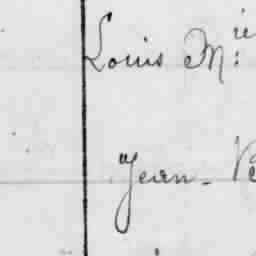 Louis M:ie
Jean-